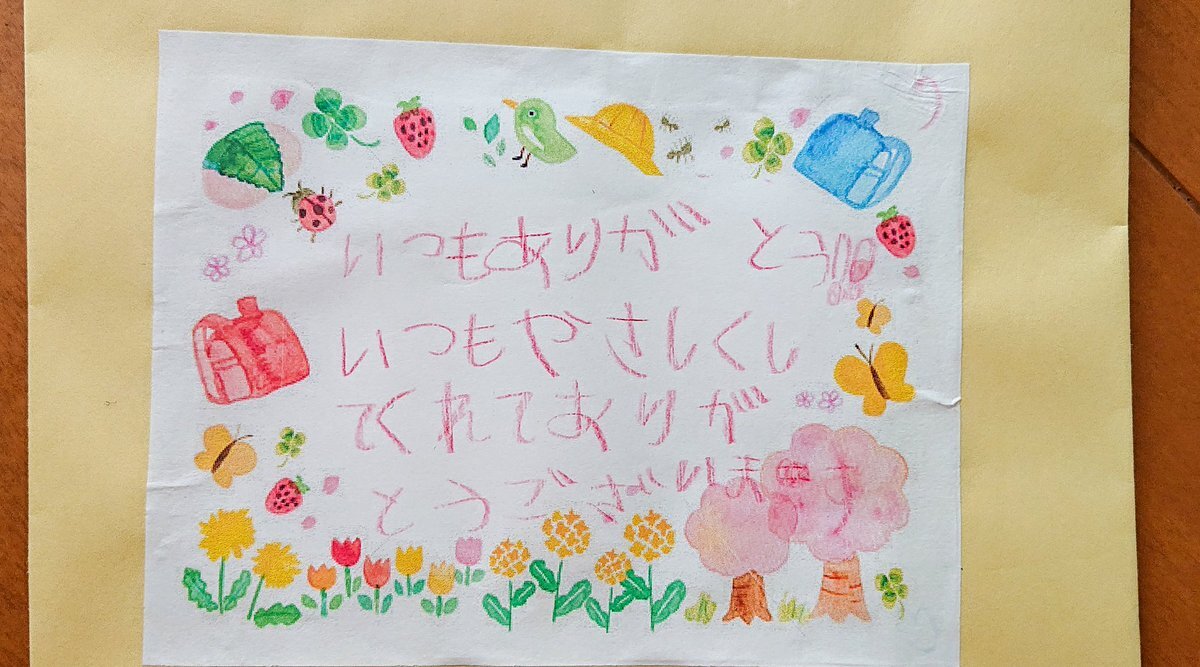 いつもありがとう!!
いつもやさしくし
てくれてありが
とうございます